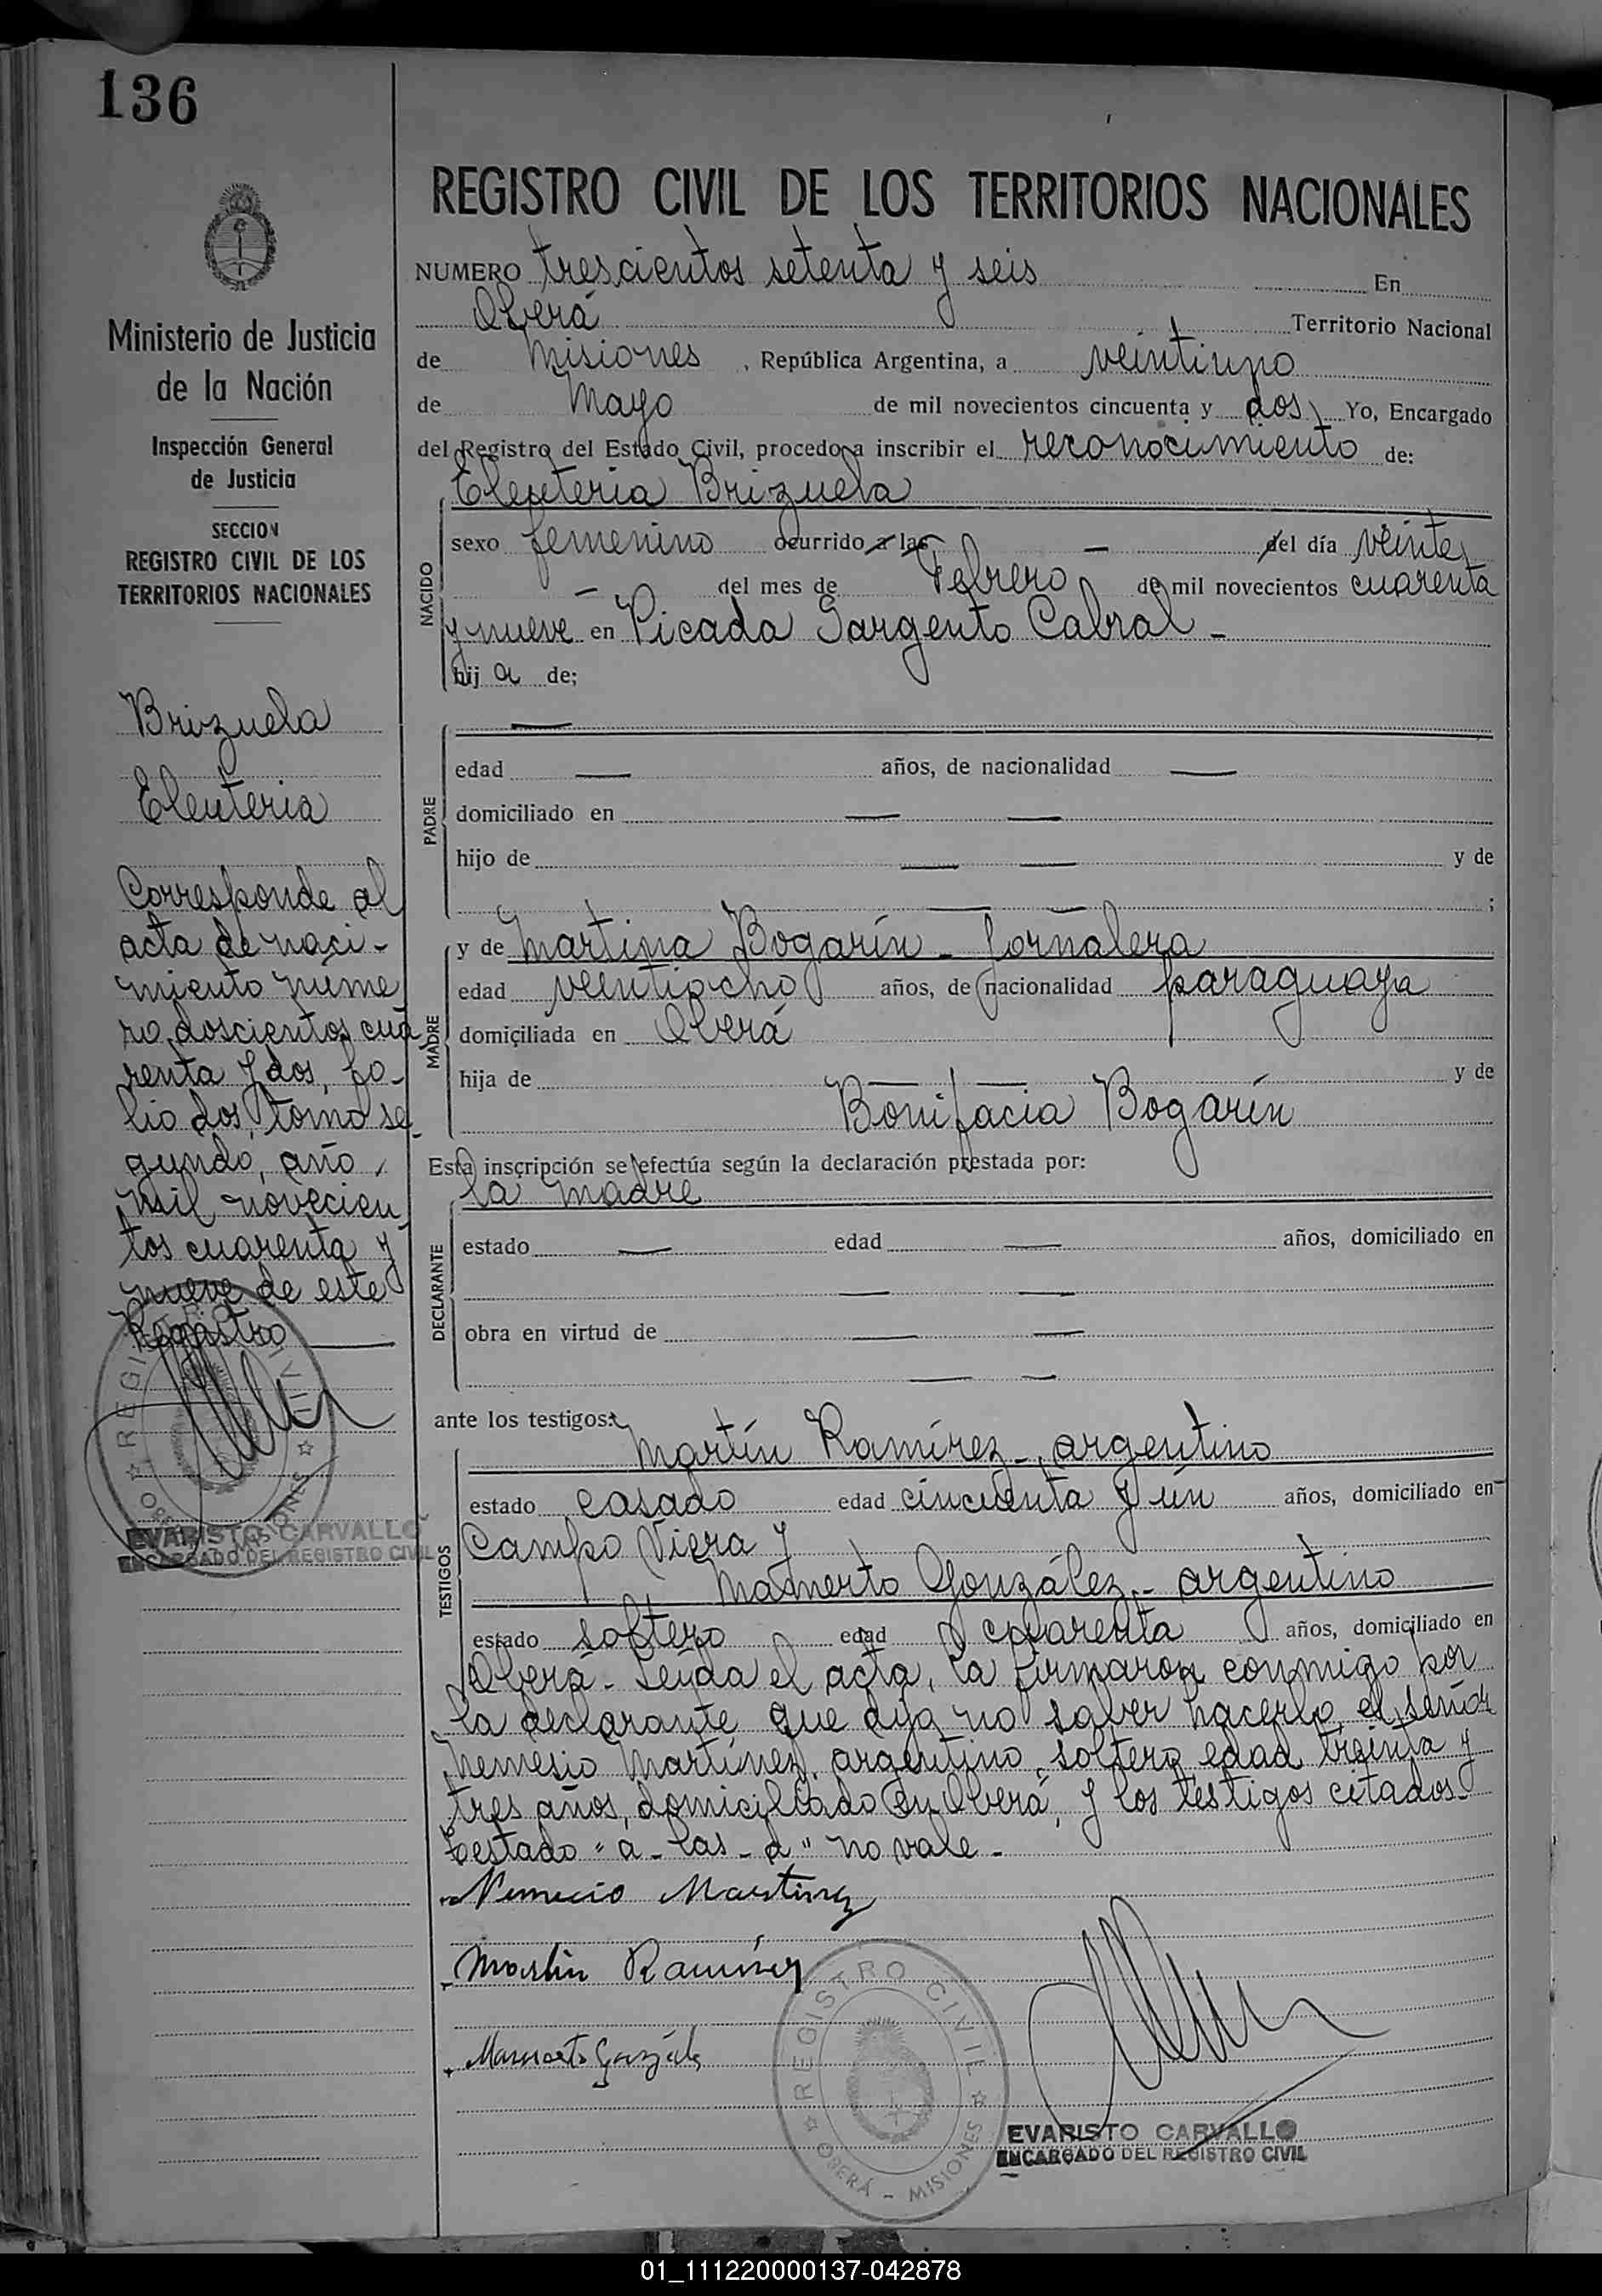 136
REGISTRO CIVIL DE LOS TERRITORIOS NACIONALES
NUMERO trescientos setenta y seis En
Oberá Territorio Nacional
de Misiones, República Argentina, a veintiuno
de Mayo de mil novecientos cincuenta y dos Yo, Encargado
del Registro del Estado Civil, procedo a inscribir el reconocimiento de:
Eleuteria Brizuela
NACIDO
sexo femenino ocurrido a las — del día veinte
— del mes de Febrero de mil novecientos cuarenta
y nueve en Picada Sargento Cabral -
hij a de;
PADRE
—
edad — años, de nacionalidad —
domiciliado en — —
hijo de — — y de
— — ;
MADRE
y de Martina Bogarín - Jornalera
edad veintiocho años, de nacionalidad paraguaya
domiciliada en Oberá
hija de — — y de
Bonifacia Bogarín
Esta inscripción se efectúa según la declaración prestada por:
la madre
DECLARANTE
estado — edad — años, domiciliado en
— —
obra en virtud de — —
— —
ante los testigos:
TESTIGOS
Martín Ramírez - argentino
estado casado edad cincuenta y un años, domiciliado en
Campo Viera y
Mamerto González - argentino
estado soltero edad cuarenta años, domiciliado en
Oberá - Leída el acta, la firmaron conmigo por
la declarante que dijo no saber hacerlo, el señor
Nemesio Martínez, argentino, soltero edad treinta y
tres años, domiciliado en Oberá, y los testigos citados.-
Testado "a - las - d" no vale -
Nemecio Martinez
Martin Ramirez
Mamerto Gonzáles
REGISTRO CIVIL
OBERÁ - MISIONES
EVARISTO CARVALLO
ENCARGADO DEL REGISTRO CIVIL
Ministerio de Justicia
de la Nación
Inspección General
de Justicia
SECCION
REGISTRO CIVIL DE LOS
TERRITORIOS NACIONALES
Brizuela
Eleuteria
Corresponde al
acta de naci-
miento núme
ro doscientos cua
renta y dos, fo-
lio dos, tomo se-
gundo, año
mil novecien
tos cuarenta y
nueve de este
Registro
REGISTRO CIVIL
OBERÁ - MISIONES
EVARISTO CARVALLO
ENCARGADO DEL REGISTRO CIVIL
01_111220000137-042878